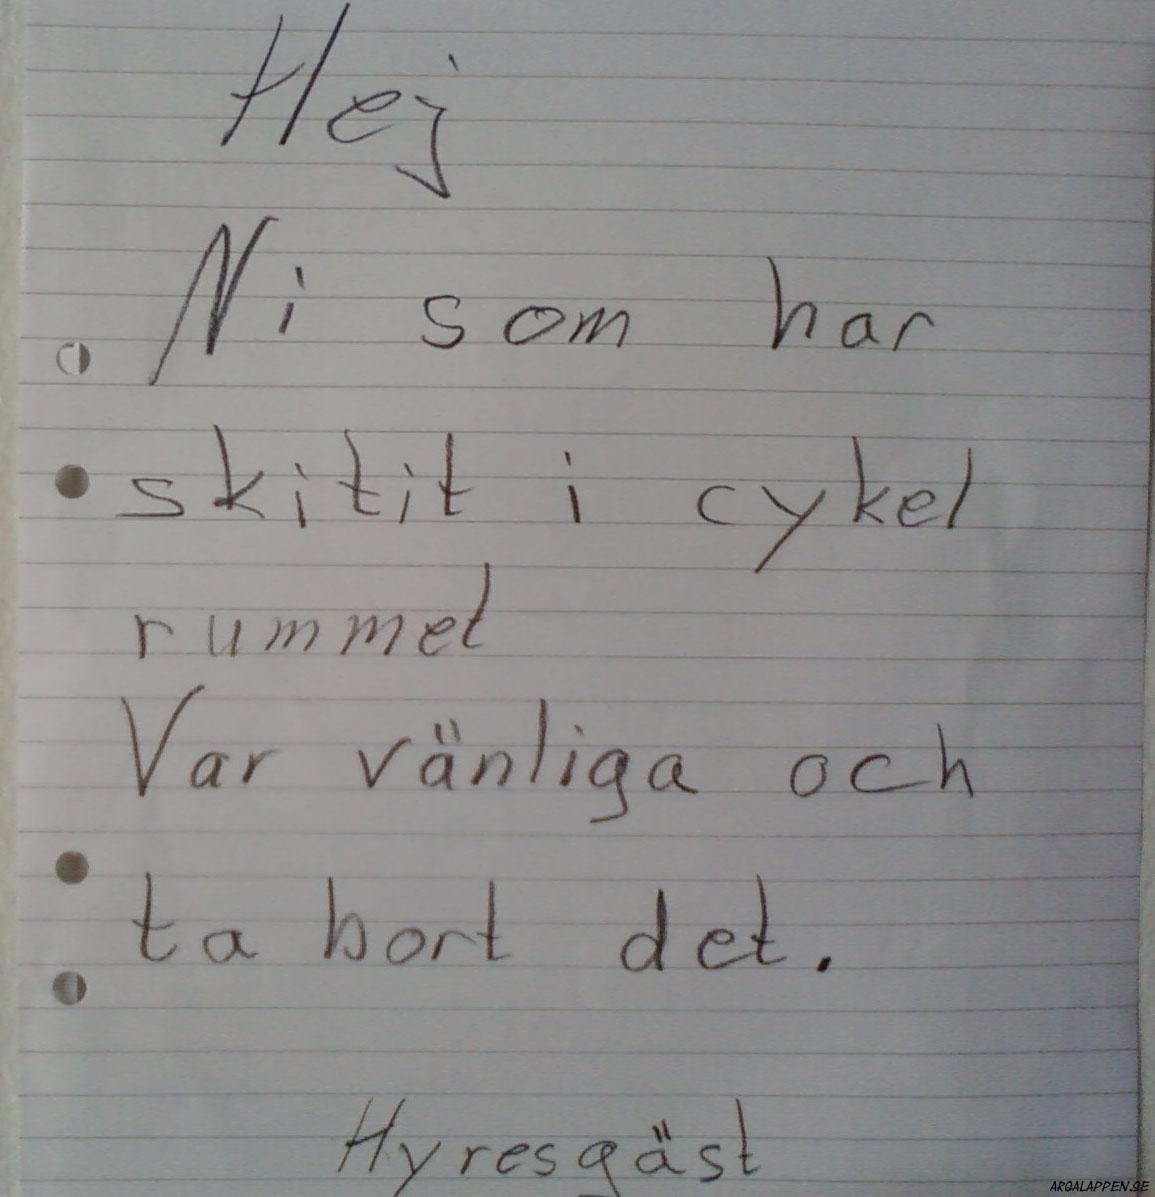 Hej
Ni som har
skitit i cykel
rummet
Var vänliga och
ta bort det.
Hyresgäst
ARGALAPPEN.SE